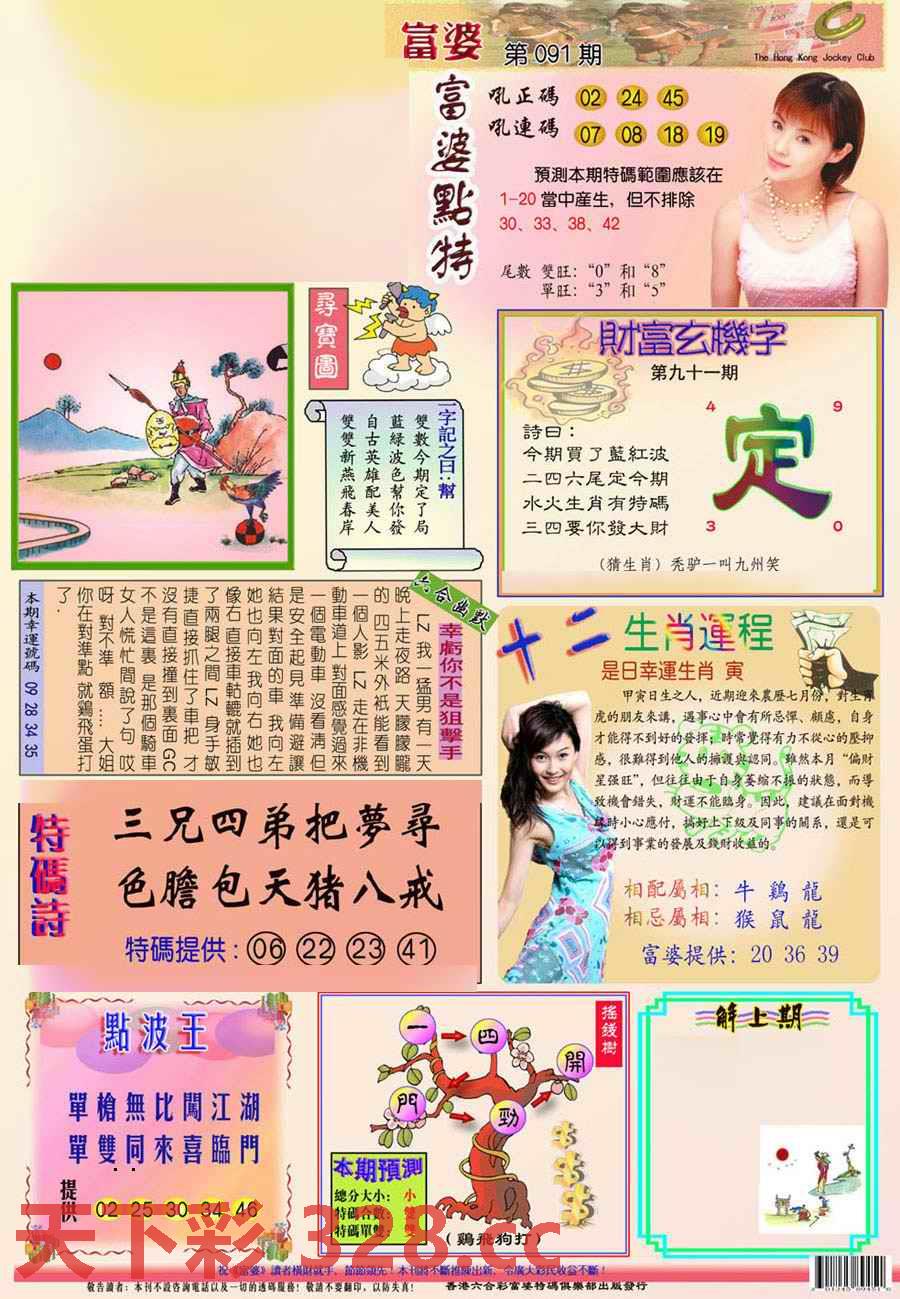 富婆 第091期
The Hong Kong Jockey Club
富婆點特
吼正碼 02 24 45
吼連碼 07 08 18 19
預測本期特碼範圍應該在
1-20當中産生，但不排除
30、33、38、42
尾數 雙旺：“0”和“8”
單旺：“3”和“5”
尋寶圖
一字記之曰：幫
雙數今期定了局
藍綠波色幫你發
自古英雄配美人
雙雙新燕飛春岸
財富玄機字
第九十一期
詩曰：
今期買了藍紅波
二四六尾定今期
水火生肖有特碼
三四要你發大財
4 9
定
3 0
（猜生肖）禿驴一叫九州笑
六合幽默
幸虧你不是狙擊手
LZ 我一猛男 有一天
晚上走夜路 天朦朦朧
的 四五米外衹能看到
一個人影 LZ 走在非機
動車道上 對面感覺過來
一個電動車 沒看清 但
是安全起見 準備避讓
結果對面的車 我向左
她也向左 我向右 她也
像右 直接車軲轆就插到
了兩腿之間 LZ 身手敏
捷 直接抓住了車把 才
沒有直接撞到裏面 GC
不是這裏 是那個騎車
女人慌忙間說了句 哎
呀 對不準 額 …… 大姐
你在對準點 就鷄飛蛋打
了．
本期幸運號碼 09 28 34 35
十二生肖運程
是日幸運生肖 寅
甲寅日生之人，近期迎來農歷七月份，對生肖
虎的朋友來講，遇事心中會有所忌憚、顧慮，自身
才能得不到好的發揮；時常覺得有力不從心的壓抑
感，很難得到他人的擁護與認同。雖然本月“偏財
星强旺”，但往往由于自身萎縮不振的狀態，而導
致機會錯失，財運不能臨身。因此，建議在面對機
緣時小心應付，搞好上下級及同事的關系，還是可
以得到事業的發展及錢財收益的。
相配屬相：牛 鷄 龍
相忌屬相：猴 鼠 龍
富婆提供：20 36 39
特碼詩
三兄四弟把夢尋
色膽包天猪八戒
特碼提供：06 22 23 41
點波王
單槍無比闖江湖
單雙同來喜臨門
提供 02 25 30 34 46
搖錢樹
一 四 門 勁 開
本期預測
總分大小：小
特碼合數：雙
特碼單雙：雙
（鷄飛狗打）
解上期
天下彩 328.cc
祝《富婆》讀者橫財就手，節節領先！本刊將不斷推陳出新，令廣大彩民收益不斷！
敬告讀者：本刊不設咨詢電話以及一切的透碼服務！敬請不要翻印，以防失真！
香港六合彩富婆特碼俱樂部出版發行